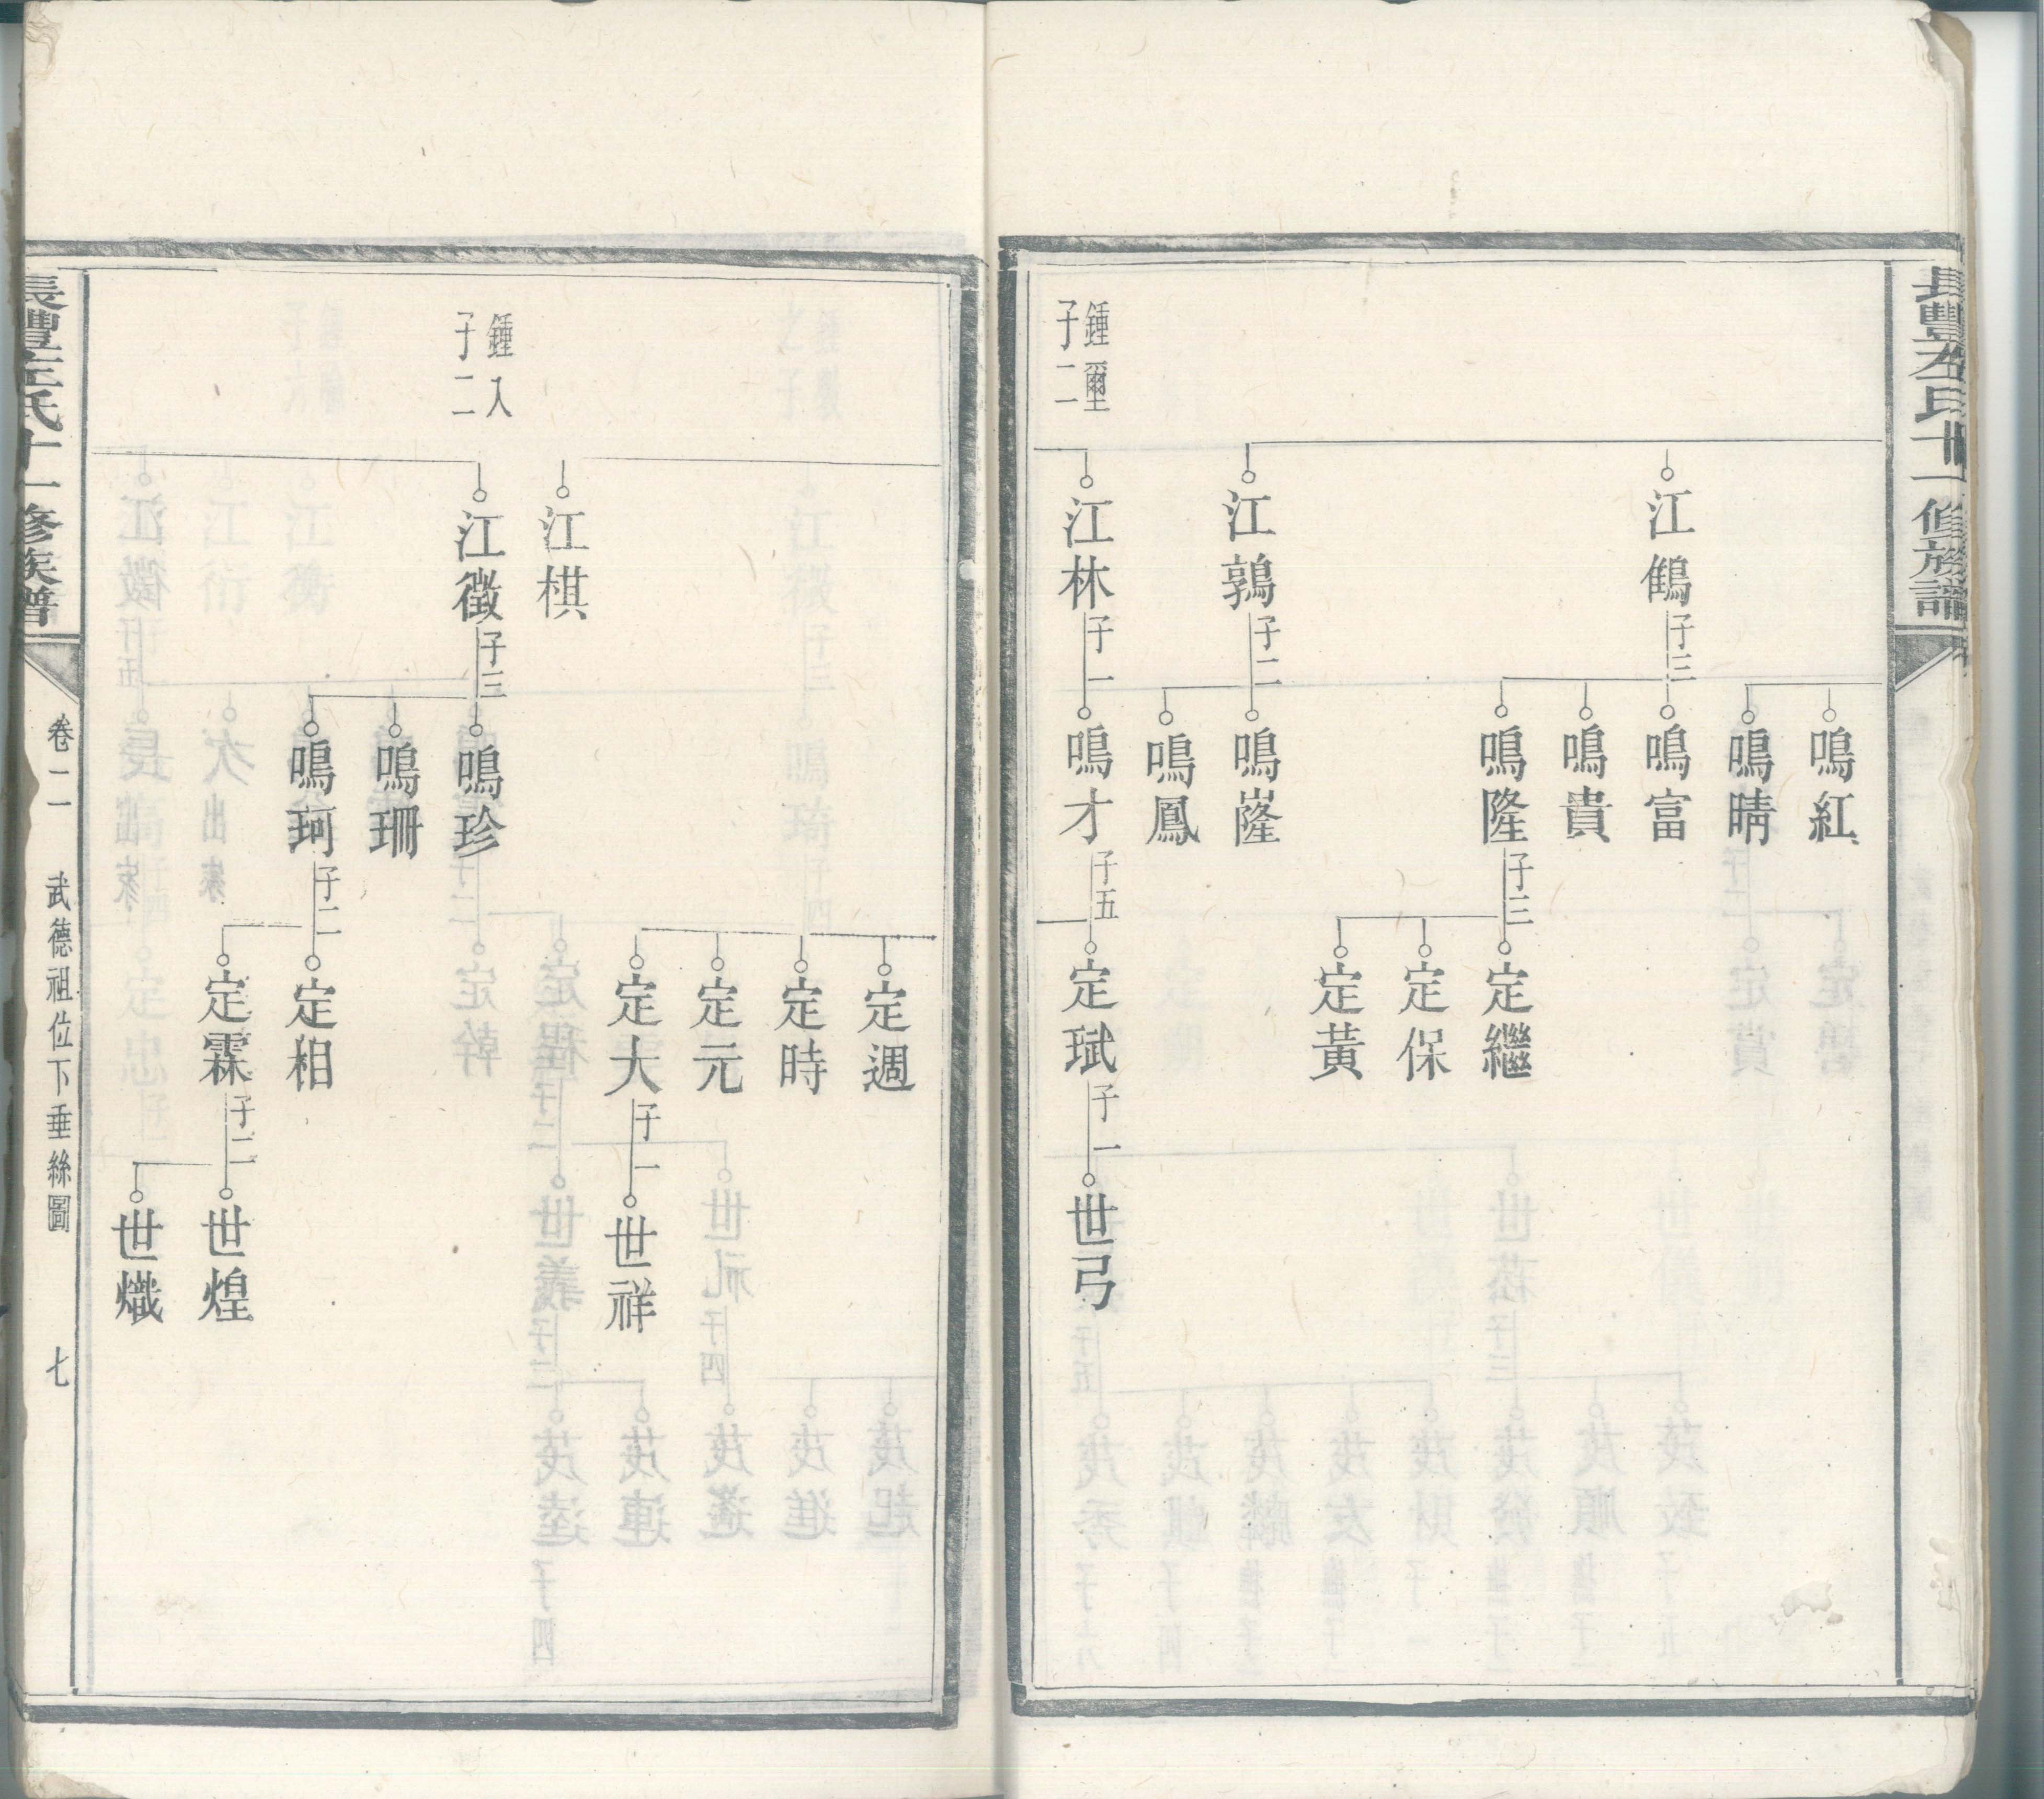 長豐左氏十一修族譜
鳴紅
鳴晴
江鶴 子三
鳴富
鳴貴
鳴隆 子三
定繼
定保
定黃
江鶉 子二
鳴嶐
鳴鳳
鍾爾
子二
江林 子一
鳴才 子五
定珷 子一
世弓
定週
定時
定元
定大 子一
世祥
江棋
鍾入
子二
江徵 子三
鳴珍
鳴珊
鳴珂 子二
定相
定霖 子二
世煌
世熾
長豐左氏十一修族譜
卷二 武德祖位下垂絲圖 七